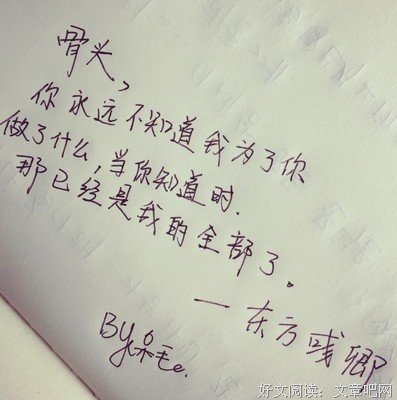 骨头，
你永远不知道我为了你
做了什么，当你知道时.
那已经是我的全部了。
—东方彧卿
By呆毛。
好文阅读：文章吧网